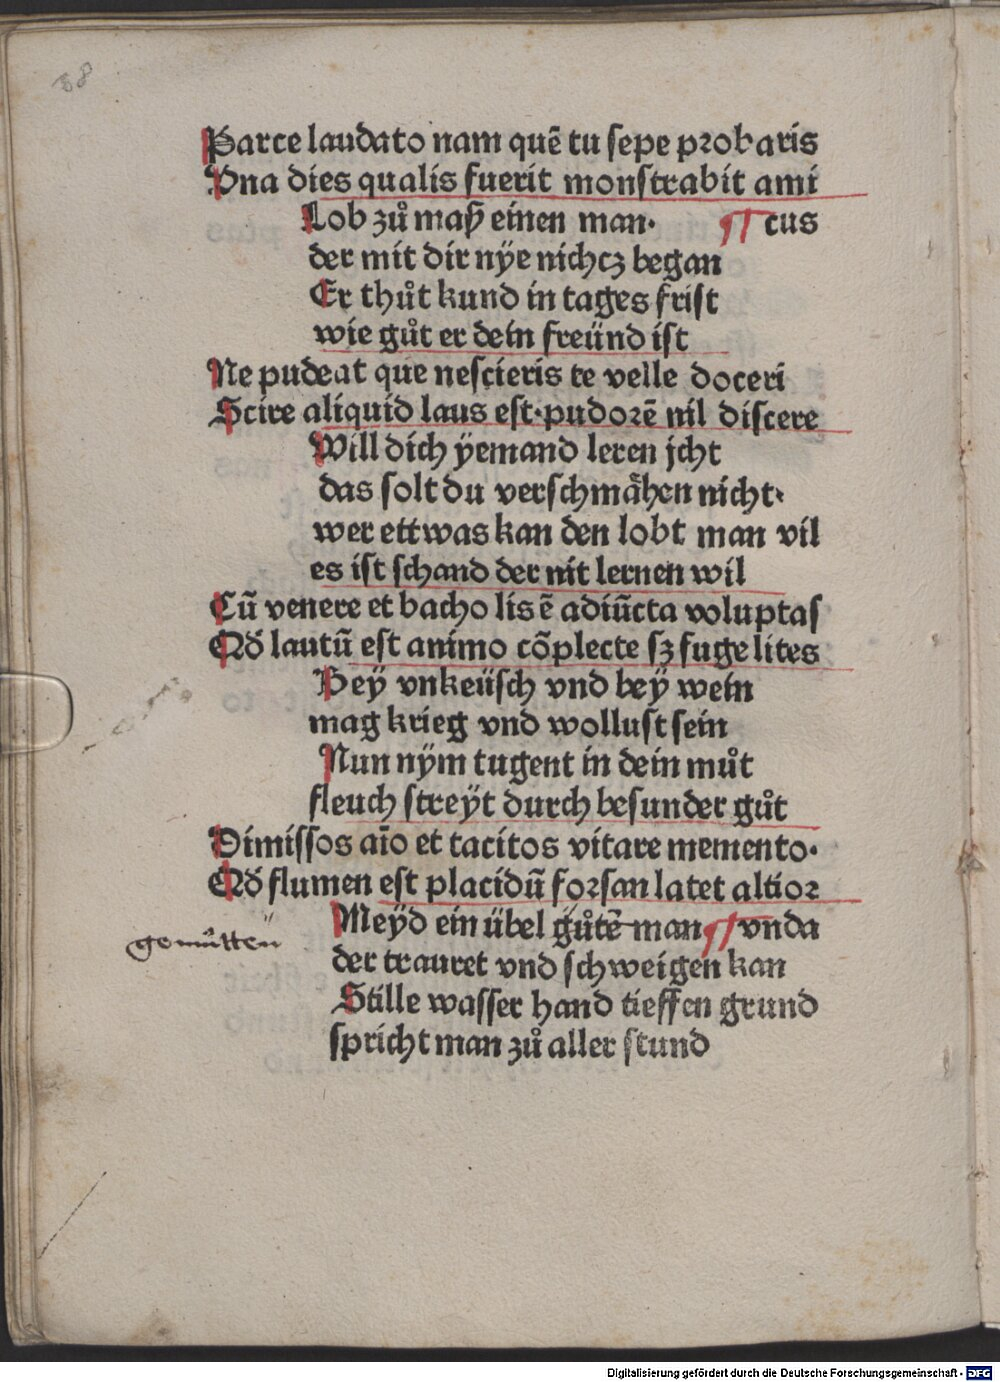 88
Parce laudato nam quē tu sepe probaris
Vna dies qualis fuerit monstrabit ami
Lob zů maß einen man· ¶ cus
der mit dir nÿe nichcz began
Er thůt kund in tages frist
wie gůt er dein freünd ist
Ne pudeat que nescieris te velle doceri
Scire aliquid laus est·pudorē nil discere
Will dich ÿemand leren jcht
das solt du verschmåhen nicht·
wer ettwas kan den lobt man vil
es ist schand der nit lernen wil
Cū venere et bacho lis ē adiūcta voluptas
Qđ lautū est animo cōplecte sz fuge lites
Bey vnkeüsch vnd beÿ wein
mag krieg vnd wollust sein
Nun nÿm tugent in dein můt
fleuch streÿt durch besunder gůt
Dimissos aīo et tacitos vitare memento·
Qđ flumen est placidū forsan latet altior
Meÿd ein übel gůtē man ¶ vnda
gemůtten
der trauret vnd schweigen kan
Stille wasser hand tieffen grund
spricht man zů aller stund
Digitalisierung gefördert durch die Deutsche Forschungsgemeinschaft - DFG